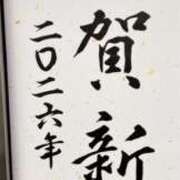 賀新
二〇二六年